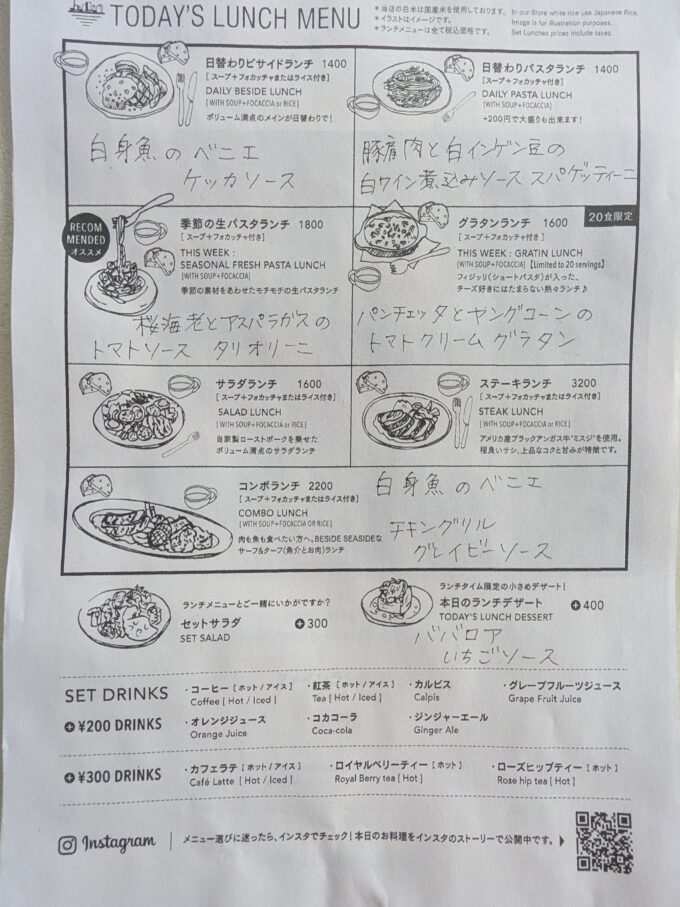 TODAY'S LUNCH MENU
＊当店の白米は国産米を使用しております。
＊イラストはイメージです。
＊ランチメニューは全て税込価格です。
In our Store white rice use Japanese Rice.
Image is for illustration purposes.
Set Lunches prices include taxes.
日替わりビサイドランチ 1400
[ スープ＋フォカッチャまたはライス付き ]
DAILY BESIDE LUNCH
[WITH SOUP+FOCACCIA or RICE]
ボリューム満点のメインが日替わりで！
白身魚のベニエ
ケッカソース
日替わりパスタランチ 1400
[スープ＋フォカッチャ付き]
DAILY PASTA LUNCH
[WITH SOUP+FOCACCIA]
+200円で大盛りも出来ます！
豚肩肉と白インゲン豆の
白ワイン煮込みソース スパゲッティーニ
RECOM
MENDED
オススメ
季節の生パスタランチ 1800
[ スープ＋フォカッチャ付き ]
THIS WEEK :
SEASONAL FRESH PASTA LUNCH
[WITH SOUP+FOCACCIA]
季節の素材をあわせたモチモチの生パスタランチ
桜海老とアスパラガスの
トマトソース タリオリーニ
20食限定
グラタンランチ 1600
[ スープ＋フォカッチャ付き ]
THIS WEEK : GRATIN LUNCH
[WITH SOUP+FOCACCIA] 【Limited to 20 servings】
フィジッリ(ショートパスタ)が入った、
チーズ好きにはたまらない熱々ランチ♪
パンチェッタとヤングコーンの
トマトクリーム グラタン
サラダランチ 1600
[ スープ＋フォカッチャまたはライス付き ]
SALAD LUNCH
[WITH SOUP+FOCACCIA or RICE]
自家製ローストポークを乗せた
ボリューム満点のサラダランチ
ステーキランチ 3200
[ スープ＋フォカッチャまたはライス付き ]
STEAK LUNCH
[WITH SOUP+FOCACCIA or RICE]
アメリカ産ブラックアンガス牛"ミスジ"を使用。
程良いサシ、上品なコクと甘みが特徴です。
コンボランチ 2200
[ スープ＋フォカッチャまたはライス付き ]
COMBO LUNCH
[WITH SOUP+FOCACCIA OR RICE]
肉も魚も食べたい方へ。BESIDE SEASIDEな
サーフ&ターフ(魚介とお肉)ランチ
白身魚のベニエ
チキングリル
グレイビーソース
ランチメニューとご一緒にいかがですか？
セットサラダ +300
SET SALAD
ランチタイム限定の小さめデザート！
本日のランチデザート +400
TODAY'S LUNCH DESSERT
ババロア
いちごソース
SET DRINKS
+¥200 DRINKS
・コーヒー [ ホット / アイス ]
Coffee [ Hot / Iced ]
・紅茶 [ ホット / アイス ]
Tea [ Hot / Iced ]
・カルピス
Calpis
・グレープフルーツジュース
Grape Fruit Juice
・オレンジジュース
Orange Juice
・コカコーラ
Coca-cola
・ジンジャーエール
Ginger Ale
+¥300 DRINKS
・カフェラテ [ ホット / アイス ]
Café Latte [ Hot / Iced ]
・ロイヤルベリーティー [ ホット ]
Royal Berry tea [ Hot ]
・ローズヒップティー [ ホット ]
Rose hip tea [ Hot ]
Instagram
メニュー選びに迷ったら、インスタでチェック！本日のお料理をインスタのストーリーで公開中です。